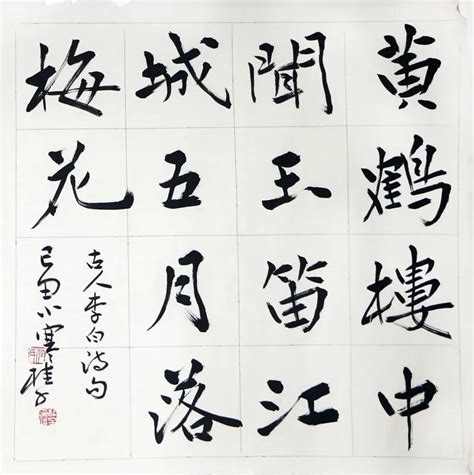 黄鶴樓中
聞玉笛江
城五月落
梅花
古人李白诗句
己亥小寒桂